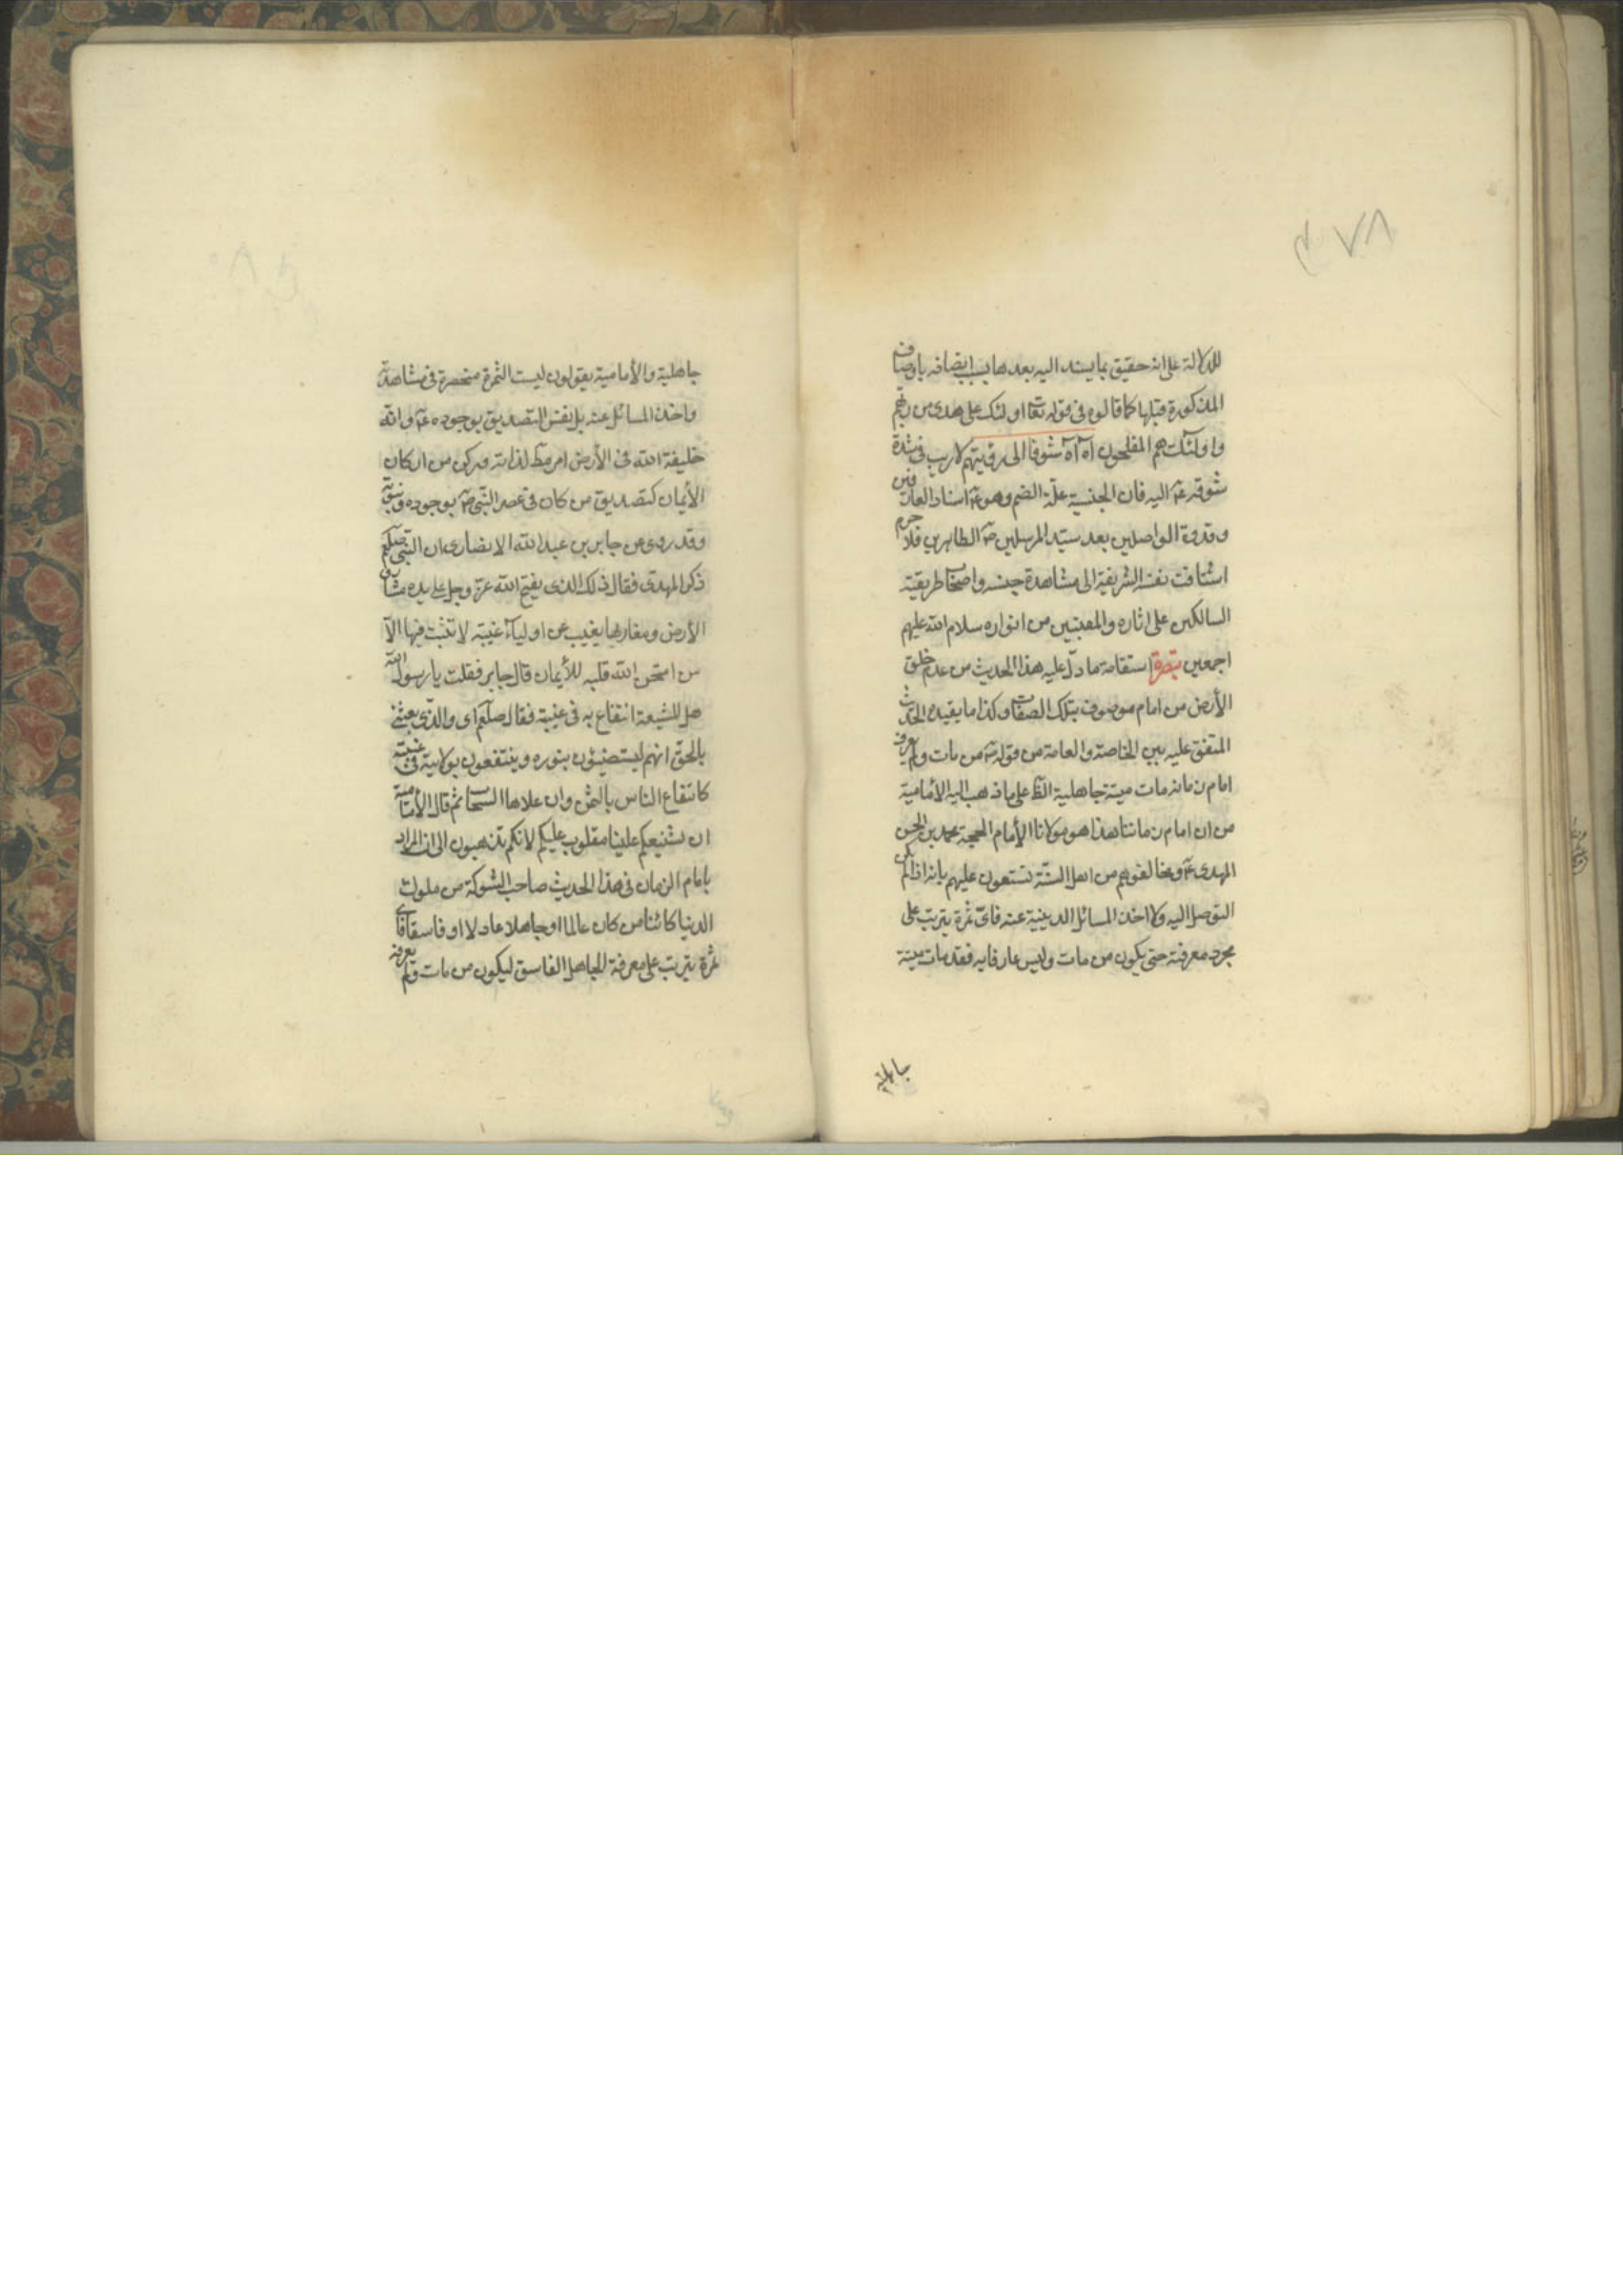 ٤٧٨
للدلالة على انه حقيق بما يسند اليه بعدها بسبب اتصافه باوصافه
المذكورة قبلها كما قالوه في قوله تعا اولئك على هدى من ربهم
واولئك هم المفلحون آه آه شوقا الى رؤيتهم لا ريب في شدة
شوقه عٓ اليه فان الجنسية علّة الضم وهو عٓ استاد العارفين
وقدوة الواصلين بعد سيّد المرسلين صٓ الطاهرين فلا جرم
اشتاقت نفسه الشريفة الى مشاهدة جنسه واصحاب طريقته
السالكين على اثاره والمقتبسين من انواره سلام الله عليهم
اجمعين تبصرة استقامة ما دلّ عليه هذا الحديث من عدم خلق
الأرض من امام موصوف بتلك الصفات وكذا ما يفيده الحديث
المتفق عليه بين الخاصة والعامة من قوله صٓ من مات ولم يعرف
امام زمانه مات ميتة جاهلية الظ على ما ذهب اليه الأمامية
من ان امام زماننا هذا هو مولانا الأمام الحجة محمد بن الحسن
المهدى عٓ ومخالفوهم من اهل السنّة تشنعون عليهم بانه اذا لم يكن
التوصل اليه ولا اخذ المسائل الدينية عنه فاىّ ثمرة يترتب على
مجرد معرفته حتى يكون من مات وليس عارفا به فقد مات ميتة
جاهلية
جاهلية والأمامية يقولون ليست الثمرة منحصرة في مشاهدته
واخذ المسائل عنه بل نفس التصديق بوجوده عٓ وانه
خليفة الله في الأرض امر مط لذاته وركن من اركان
الأيمان كتصديق من كان في عصر النبي صٓ بوجوده ونبوته
وقد روى عن جابر بن عبد الله الانصارى ان النبي صلعم
ذكر المهدى فقال ذلك الذى يفتح الله عز وجل على يده مشارق
الأرض ومغاربها يغيب عن اولياءه غيبة لا تثبت فيها الا
من امتحن الله قلبه للأيمان قال جابر فقلت يا رسول الله
هل للشيعة انتفاع به في غيبة فقال صلعم اى والّذى بعثنى
بالحق انهم ليستضيئون بنوره وينتفعون بولايته في غيبته
كانتفاع الناس بالشمس وان علاها السحاب ثم قال الأمامية
ان تشنيعكم علينا مقلوب عليكم لانكم تذهبون الى ان المراد
بامام الزمان في هذا الحديث صاحب الشوكة من ملوك
الدنيا كائنا من كان عالما او جاهلا عادلا او فاسقا فاى
ثمرة يترتب على معرفة الجاهل الفاسق ليكون من مات ولم يعرفه